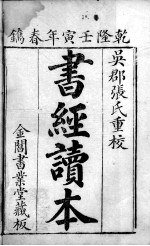 乾隆壬寅年春鐫
吳郡張氏重校
書經讀本
金閶書業堂藏板